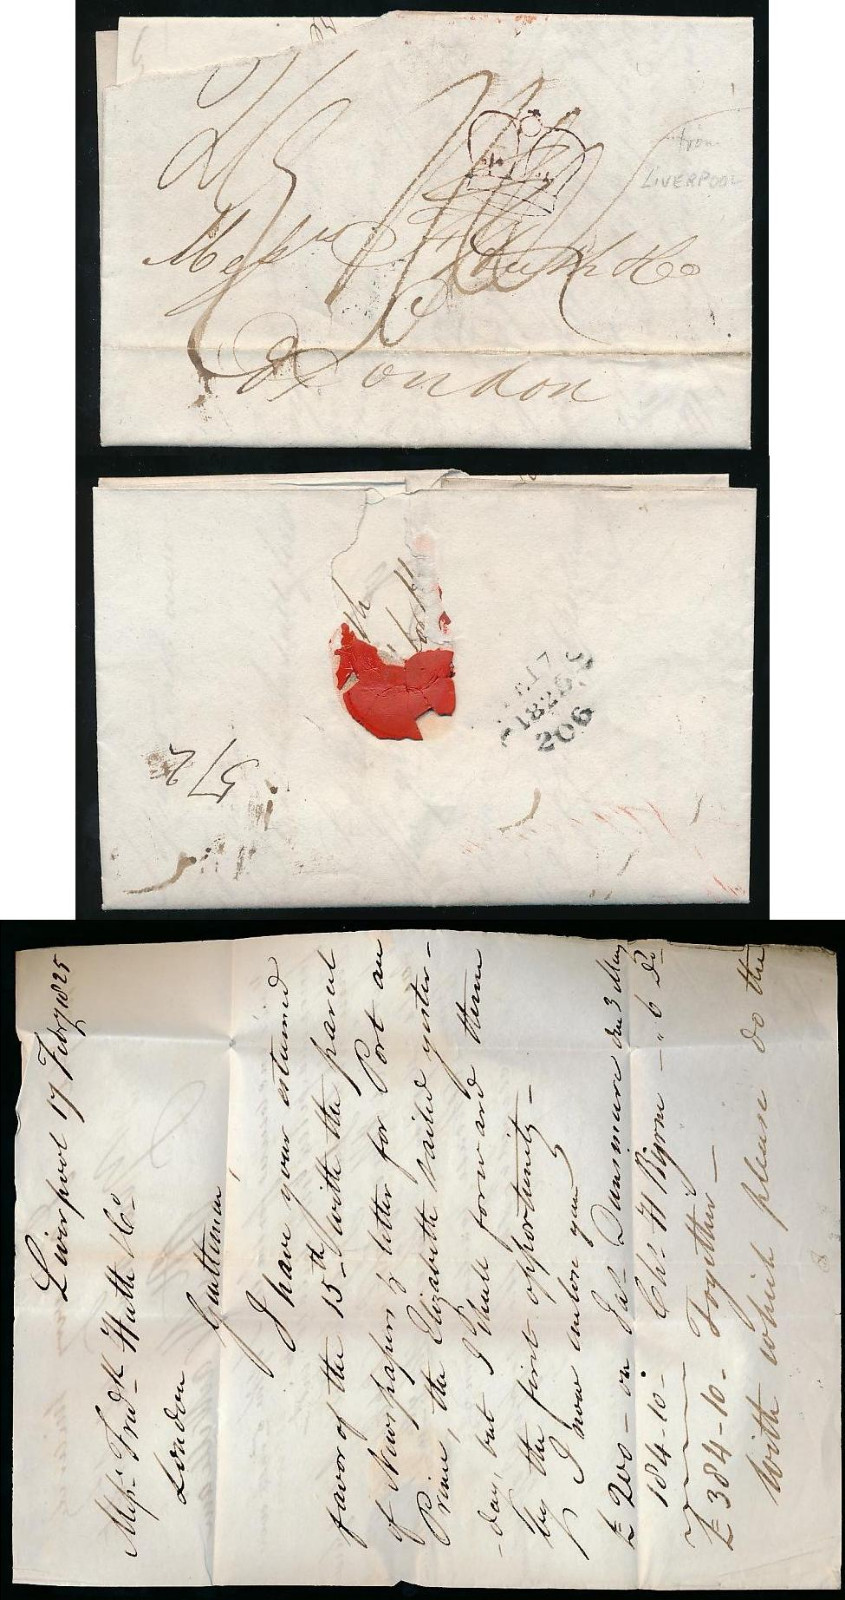 from
LIVERPOOL
Messrs F Huth & Co
London
FE 17
1825
206
572
Liverpool 17 Febry 1825
Messrs Fredk Huth & Co
London
Gentlemen
I have your esteemed
favor of the 15th with the parcel
of Newspapers & letter for Port au
Prince, the Elizabeth sailed yester-
-day, but I shall forward them
by the first opportunity -
I now enclose you
£ 200 - on Jas Dunsmure due 3 May
184-10- Chs H Byrne - " 6 Do
£ 384-10- Together -
With which please do the